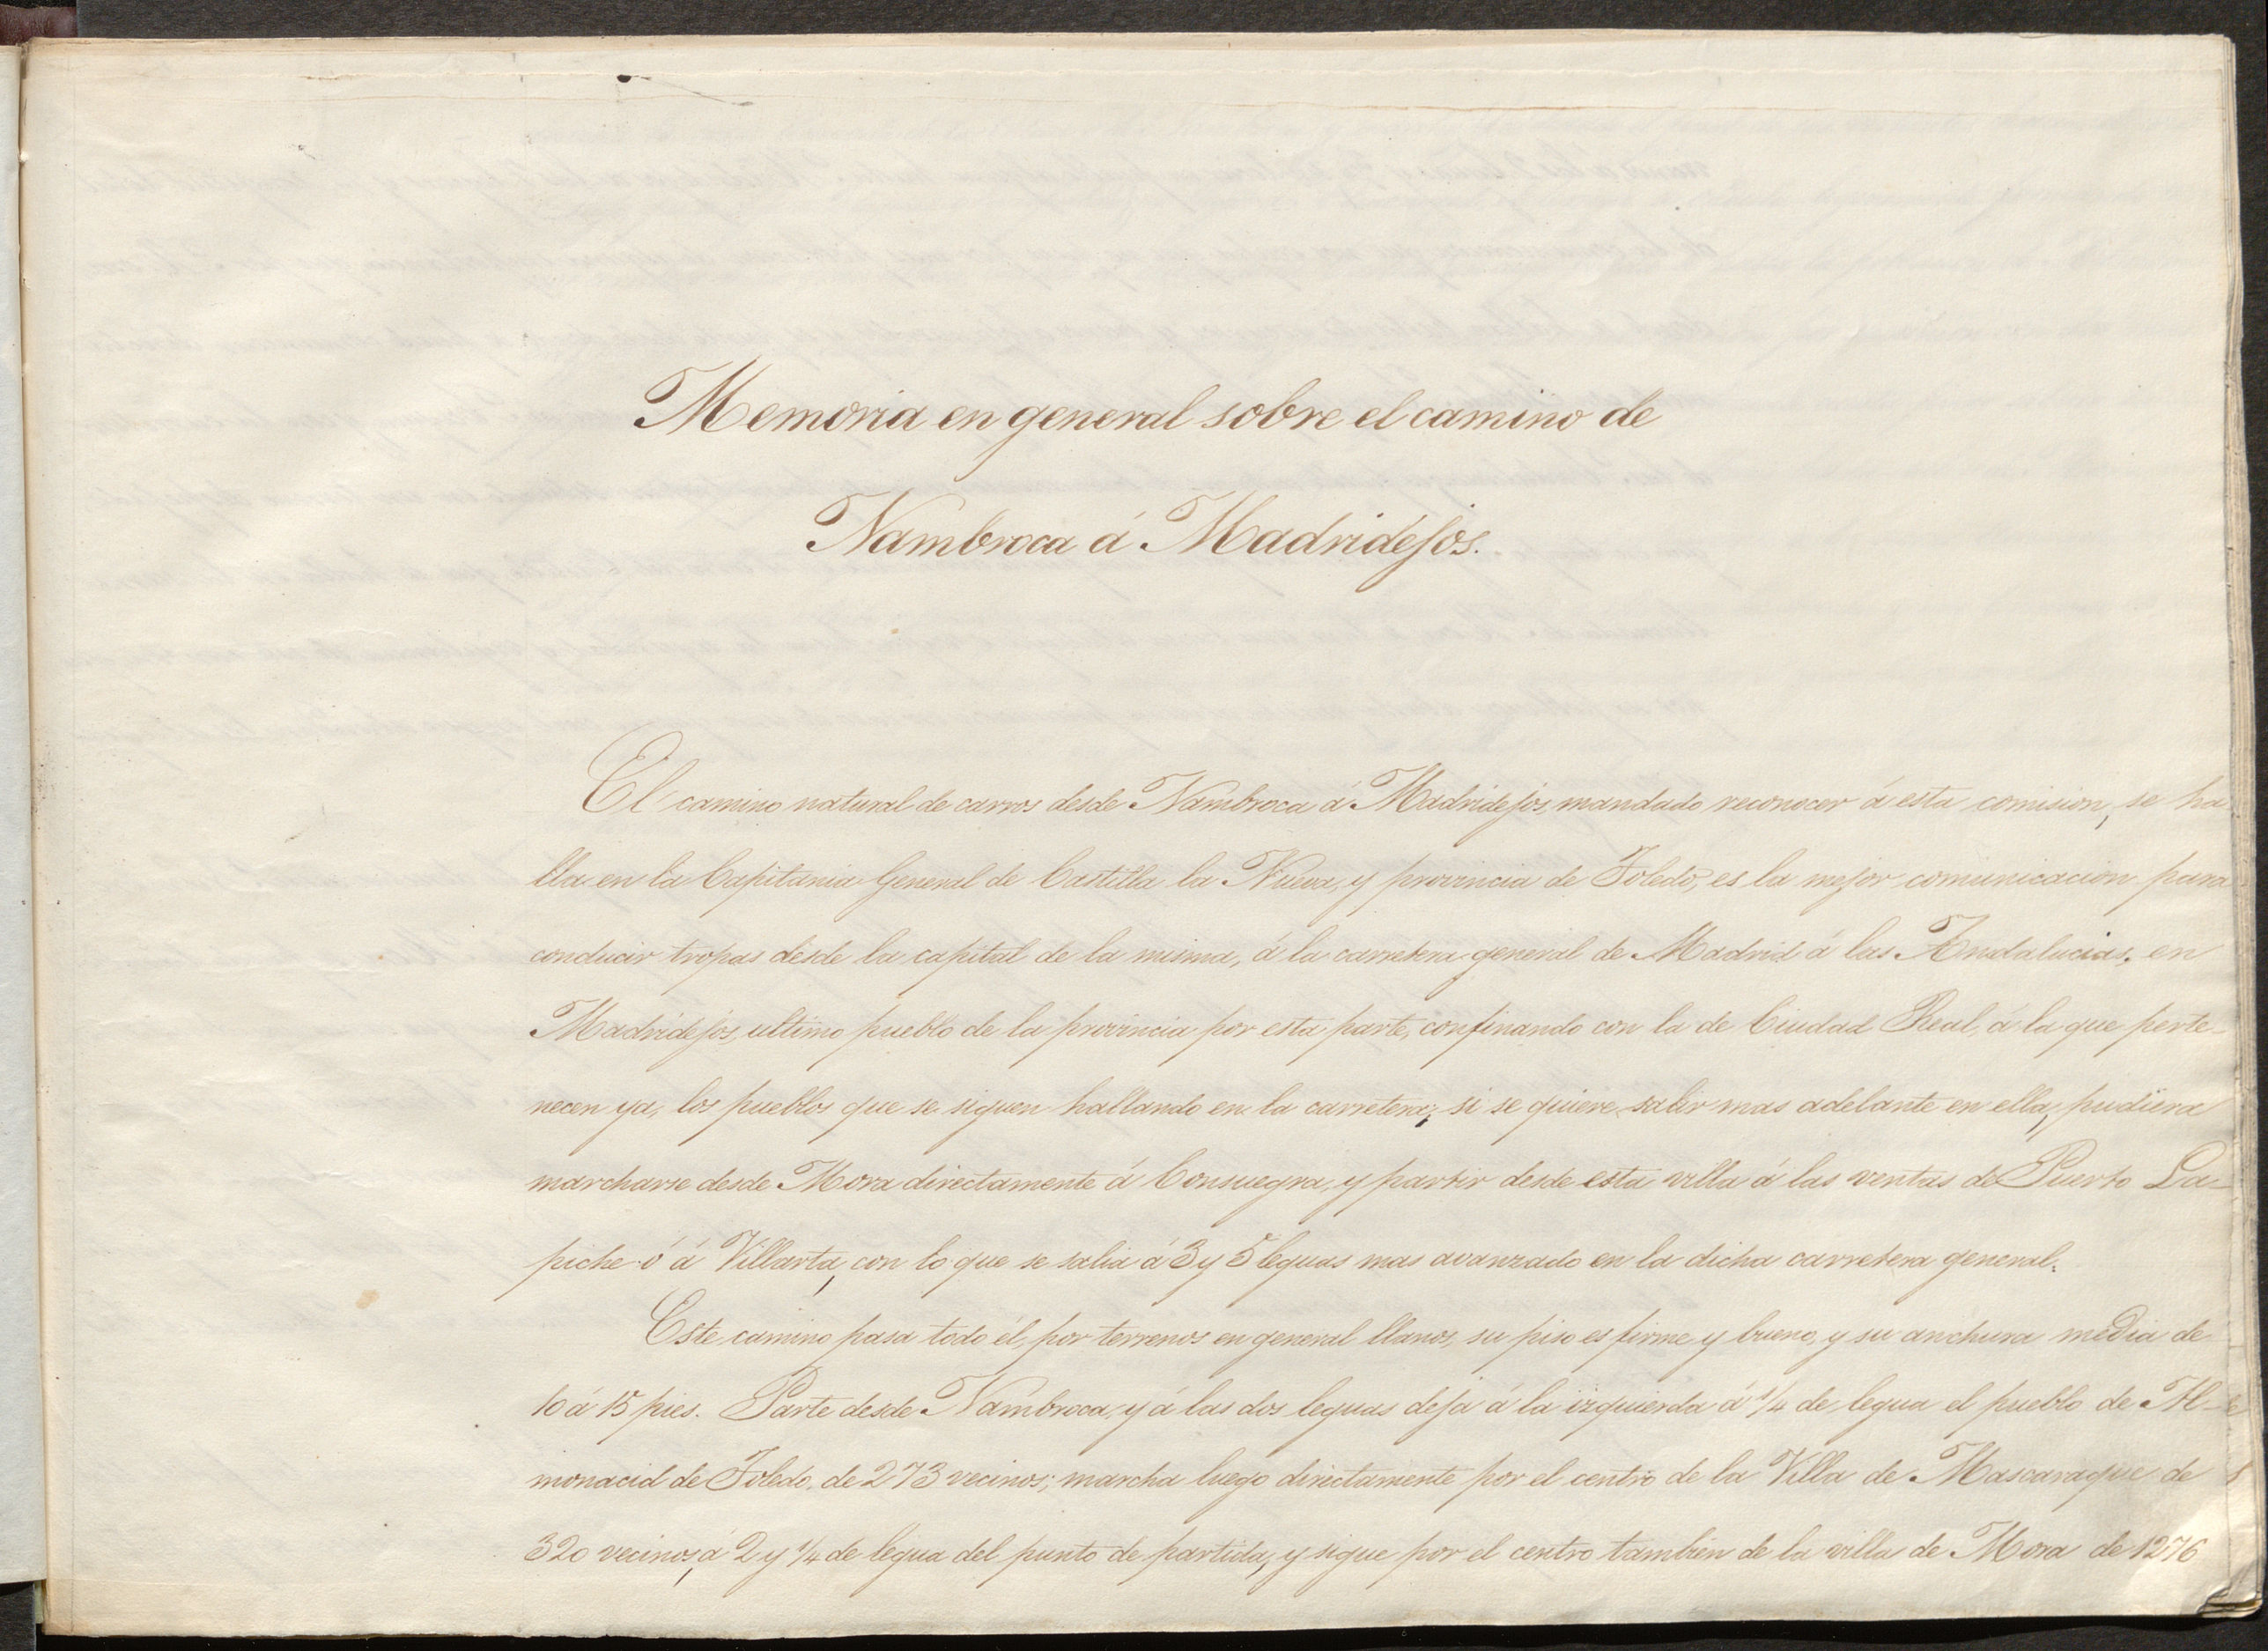 Memoria en general sobre el camino de
Nambroca á Madridejos.
El camino natural de carros desde Nambroca á Madridejos, mandado reconocer á esta comision, se ha
lla en la Capitania General de Castilla la Nueva, y provincia de Toledo, es la mejor comunicacion para
conducir tropas desde la capital de la misma, á la carretera general de Madrid á las Andalucias, en
Madridejos, ultimo pueblo de la provincia por esta parte, confinando con la de Ciudad Real, á la que perte-
necen ya, los pueblos que se siguen hallando en la carretera; si se quiere salir mas adelante en ella, pudiera
marcharse desde Mora directamente á Consuegra, y partir desde esta villa á las ventas de Puerto La-
piche ó á Villarta, con lo que se salia á 3 y 5 leguas mas avanzado en la dicha carretera general.
Este camino pasa todo él, por terrenos en general llanos, su piso es firme y bueno, y su anchura media de
10 á 15 pies. Parte desde Nambroca, y á las dos leguas deja á la izquierda á 1/4 de legua el pueblo de Al-
monacid de Toledo, de 273 vecinos; marcha luego directamente por el centro de la Villa de Mascaraque de
320 vecinos, á 2 y 1/4 de legua del punto de partida, y sigue por el centro tambien de la villa de Mora de 1276